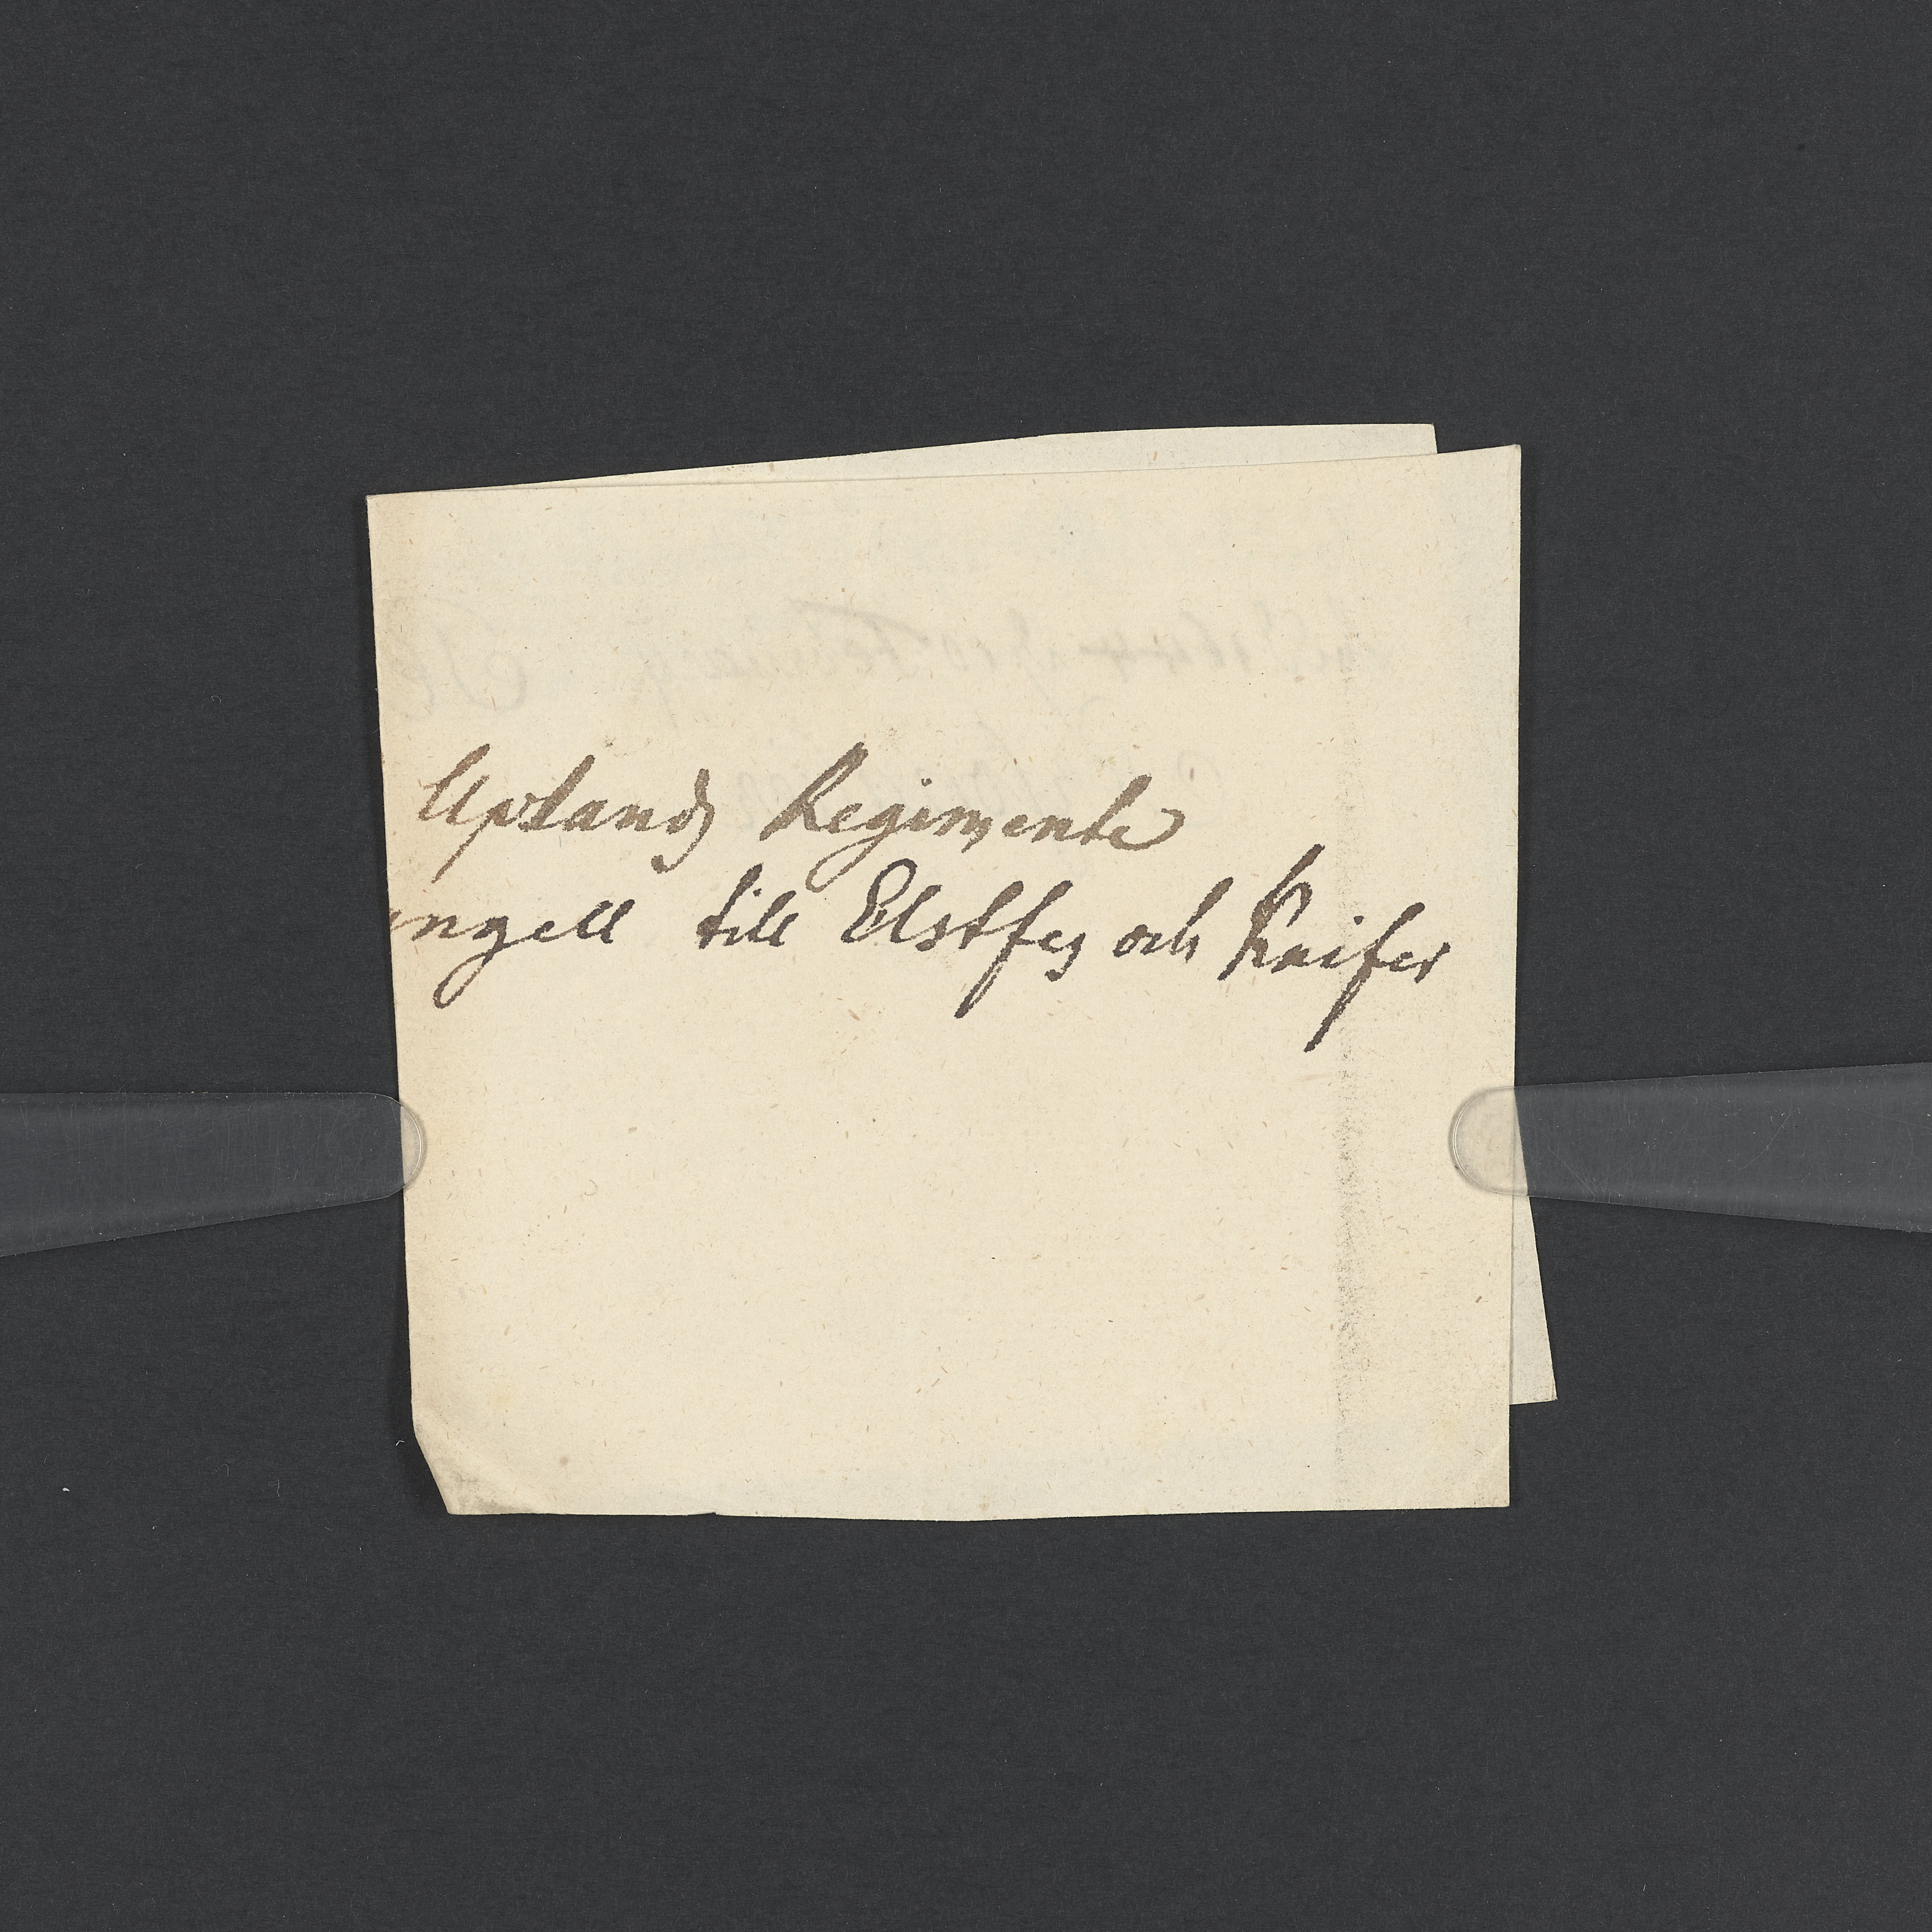 Uplands Regimente
ngell till Elstfes och Kaifer